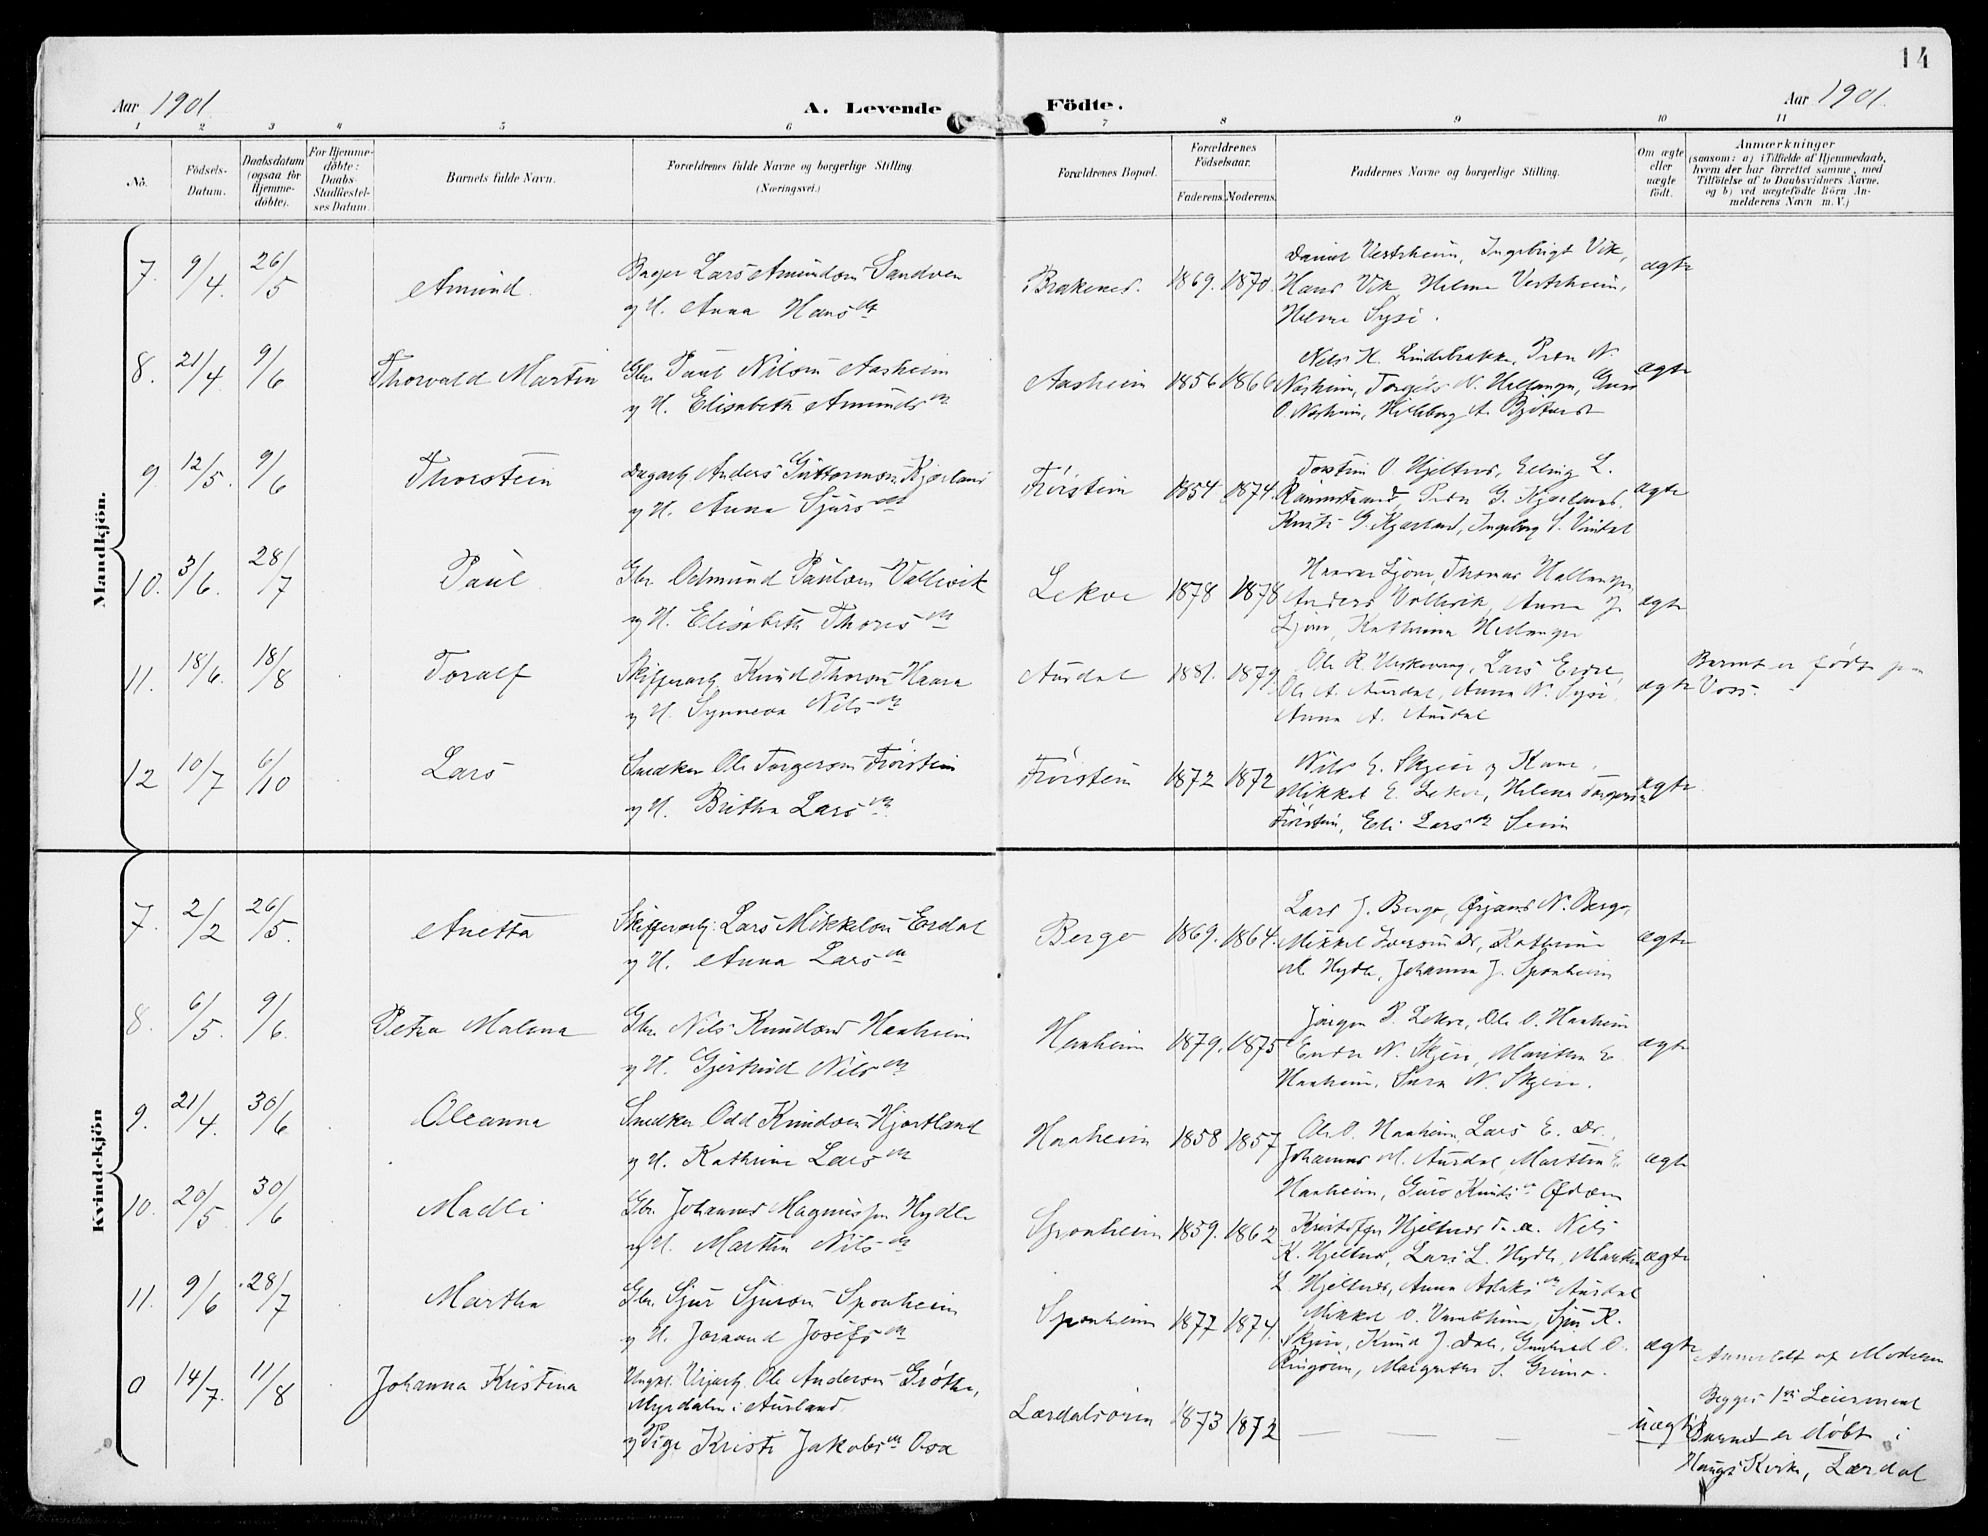 14
Aar 1901. A. Levende Födte. Aar 1901.
1 2 3 4 5 6 7 8 9 10 11
No.
Födsels-
Datum.
Daabsdatum
(ogsaa for
Hjemme-
döbte).
For Hjemme-
döbte:
Daabs-
Stadfæstel-
ses Datum.
Barnets fulde Navn.
Forældrenes fulde Navne og borgerlige Stilling.
(Næringsvei.)
Forældrenes Bopæl.
Forældrenes
Födselsaar.
Faderens. Moderens.
Faddernes Navne og borgerlige Stilling.
Om ægte
eller
uægte
födt.
Anmærkninger
(saasom: a) i Tilfælde af Hjemmedaab,
hvem der har forrettet samme, med
Tilföielse af to Daabsvidners Navne,
og b) ved uægtefödte Börn An-
melderens Navn m. V.)
Mandkjön.
7. 9/4. 26/5 Amund.
Bager Lars Amundsen Sandven
og H. Anna Hans dtr
Brakenes. 1869. 1870.
Daniel Vestrheim, Ingebrigt Vik,
Hans Vik, Helene Vestrheim,
Helene Syse.
ægte
8. 21/4. 9/6 Thorvald Martin
Gbr. Paul Nilsen Aasheim
og H. Elisabeth Amunds dtr
Aasheim 1856 1866
Nels H. Lindebrække, Peder N.
Nesheim, Torgels N. Hellangen, Guro
O. Nesheim,
ægte
9. 12/5. 9/6 Thorstein
Dagarb. Anders Guttormsen Kjærland
og H. Anna Sjurs dtr
Tröistein 1854 1874.
Torstein O. Hjeltnes, Elling L.
Peder G. Kjærland,
G. Kjærland, Ingeborg S. Vindal
ægte
10. 3/6. 28/7 Paul
Gbr. Odmund Paulsen Vallevik
og H. Elisabeth Thores dtr
Lekve 1878 1878
Ljone, Thomas Hellangen,
Anders Vallevik, Anna J.
Ljone, Kathrina Hellangen
ægte
11. 18/6. 18/8 Toralf
Skipperarb. Knud Thorsen Haara
og H. Synneva Nils dtr
Aurdal 1881. 1879.
Ole R. Lars Erdal,
Ole A. Aurdal, Anna N. Syse,
Anna A. Aurdal
ægte
Barnet er födt paa
Voss.
12 10/7 6/10 Lars
Snedker Ole Torgersen Tröistein
og H. Britha Lars dtr.
Tröistein 1872 1872
Nils E. Skeie og Kone,
Mikkel E. Lekve, Helena Torgersen
Tröistein, Eli Lars dtr Seim
ægte
Kvindekjön
7. 2/2 26/5. Anetta
Skipperarb. Lars Mikkelsen Erdal
og H. Anna Lars dtr
Berge 1869. 1864.
Lars J. Berge, Örjans N. Berge,
Mikkel Iversen Do, Kathrine
M. Hydle, Johanna J. Sponheim
ægte
8. 6/5. 9/6. Petra Malena
Gbr. Nils Knudsen Haaheim
og H. Gjertrud Nils dtr
Haaheim 1879. 1875
Jörgen P. Lekve, Ole O. Haaheim
Endre N. Skeie, Maritha E.
Haaheim, Sara N. Skeie.
ægte
9. 21/4. 30/6 Oleanna
Snedker Odd Knudsen Hjortland
og H. Kathrine Lars dtr
Haaheim 1858 1857
Ole O. Haaheim, Lars E. Do.,
Johannes M. Aurdal, Martha E.
Haaheim, Guro Knuds dtr
ægte
10. 20/5. 30/6 Madli
Gbr. Johannes Magnussen Hydle
og H. Martha Nils dtr
Sponheim 1859. 1862
Kristofer Hjeltnes d. æ. Nils
K. Hjeltnes, Lars L. Hydle, Martha
L. Hjeltnes, Anna Aslaks dtr Aurdal
ægte
11. 9/6 28/7 Martha
Gbr. Sjur Sjursen Sponheim
og H. Joraand Josefs dtr
Sponheim 1877 1874.
Mikkel O. Sjur K.
Skeie, Knud J. Dale, Gunhild O.
Ringöen, Margreta S. Grimo.
ægte
0 14/7. 11/8 Johanna Kristina
Ungk. Ole Andersen Gröthe,
Myrdalen i Aurland
og Pige Kristi Jakobs dtr Osa
Lærdalsören 1873 1872
— — — —
uægte
Anmeldt af Moderen
Begges 1ste Leiermaal
Barnet er döbt i
Hauge Kirke, Lærdal